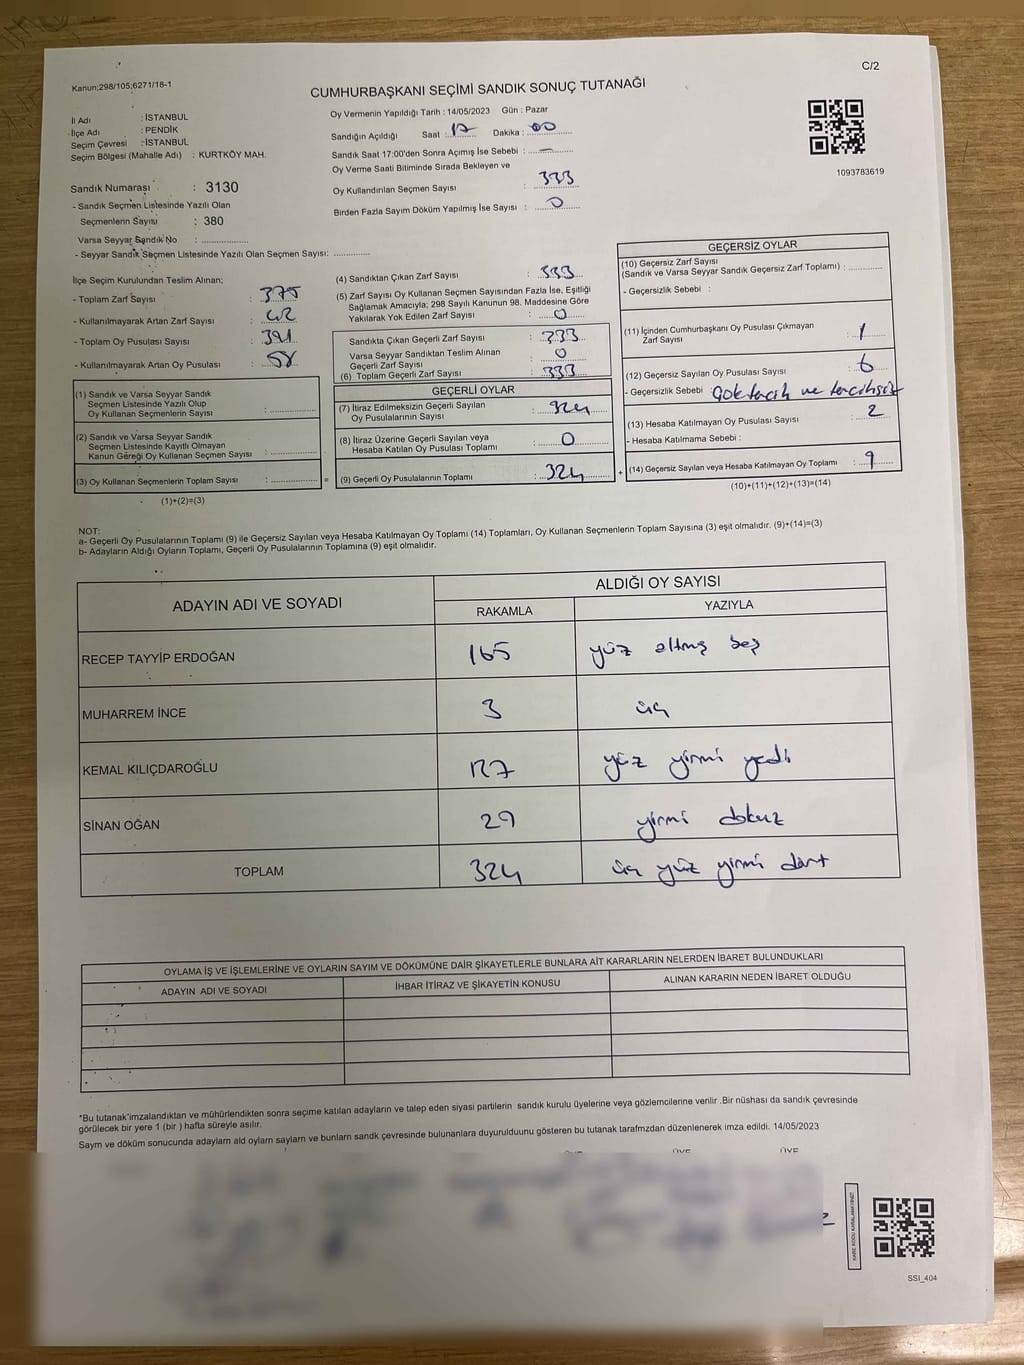 C/2
Kanun;298/105;6271/18-1
CUMHURBAŞKANI SEÇİMİ SANDIK SONUÇ TUTANAĞI
İl Adı : İSTANBUL
İlçe Adı : PENDİK
Seçim Çevresi : İSTANBUL
Seçim Bölgesi (Mahalle Adı) : KURTKÖY MAH.
Oy Vermenin Yapıldığı Tarih : 14/05/2023 Gün : Pazar
Sandığın Açıldığı Saat : 17 Dakika : 00
Sandık Saat 17:00'den Sonra Açımış İse Sebebi : —
Oy Verme Saati Bitiminde Sırada Bekleyen ve
Oy Kullandırılan Seçmen Sayısı : 333
Birden Fazla Sayım Döküm Yapılmış İse Sayısı : 0
1093783619
Sandık Numarası : 3130
- Sandık Seçmen Listesinde Yazılı Olan
Seçmenlerin Sayısı : 380
Varsa Seyyar Sandık No : ..............
- Seyyar Sandık Seçmen Listesinde Yazılı Olan Seçmen Sayısı: ..............
İlçe Seçim Kurulundan Teslim Alınan;
- Toplam Zarf Sayısı : 375
- Kullanılmayarak Artan Zarf Sayısı : 42
- Toplam Oy Pusulası Sayısı : 391
- Kullanılmayarak Artan Oy Pusulası : 58
(1) Sandık ve Varsa Seyyar Sandık
Seçmen Listesinde Yazılı Olup
Oy Kullanan Seçmenlerin Sayısı : ..............
(2) Sandık ve Varsa Seyyar Sandık
Seçmen Listesinde Kayıtlı Olmayan
Kanun Gereği Oy Kullanan Seçmen Sayısı : ..............
(3) Oy Kullanan Seçmenlerin Toplam Sayısı : ..............
(1)+(2)=(3)
(4) Sandıktan Çıkan Zarf Sayısı : 333
(5) Zarf Sayısı Oy Kullanan Seçmen Sayısından Fazla İse, Eşitliği
Sağlamak Amacıyla; 298 Sayılı Kanunun 98. Maddesine Göre
Yakılarak Yok Edilen Zarf Sayısı : 0
Sandıkta Çıkan Geçerli Zarf Sayısı : 333
Varsa Seyyar Sandıktan Teslim Alınan
Geçerli Zarf Sayısı : 0
(6) Toplam Geçerli Zarf Sayısı : 333
GEÇERLİ OYLAR
(7) İtiraz Edilmeksizin Geçerli Sayılan
Oy Pusulalarının Sayısı : 324
(8) İtiraz Üzerine Geçerli Sayılan veya
Hesaba Katılan Oy Pusulası Toplamı : 0
= (9) Geçerli Oy Pusulalarının Toplamı : 324 +
GEÇERSİZ OYLAR
(10) Geçersiz Zarf Sayısı
(Sandık ve Varsa Seyyar Sandık Geçersiz Zarf Toplamı) : ..............
- Geçersizlik Sebebi :
(11) İçinden Cumhurbaşkanı Oy Pusulası Çıkmayan
Zarf Sayısı : 1
(12) Geçersiz Sayılan Oy Pusulası Sayısı : 6
- Geçersizlik Sebebi Çok tercih ve tercihsiz
(13) Hesaba Katılmayan Oy Pusulası Sayısı : 2
- Hesaba Katılmama Sebebi :
(14) Geçersiz Sayılan veya Hesaba Katılmayan Oy Toplamı : 9
(10)+(11)+(12)+(13)=(14)
NOT:
a- Geçerli Oy Pusulalarının Toplamı (9) ile Geçersiz Sayılan veya Hesaba Katılmayan Oy Toplamı (14) Toplamları, Oy Kullanan Seçmenlerin Toplam Sayısına (3) eşit olmalıdır. (9)+(14)=(3)
b- Adayların Aldığı Oyların Toplamı, Geçerli Oy Pusulalarının Toplamına (9) eşit olmalıdır.
ADAYIN ADI VE SOYADI ALDIĞI OY SAYISI
RAKAMLA YAZIYLA
RECEP TAYYİP ERDOĞAN 165 yüz altmış beş
MUHARREM İNCE 3 üç
KEMAL KILIÇDAROĞLU 127 yüz yirmi yedi
SİNAN OĞAN 29 yirmi dokuz
TOPLAM 324 üç yüz yirmi dört
OYLAMA İŞ VE İŞLEMLERİNE VE OYLARIN SAYIM VE DÖKÜMÜNE DAİR ŞİKAYETLERLE BUNLARA AİT KARARLARIN NELERDEN İBARET BULUNDUKLARI
ADAYIN ADI VE SOYADI İHBAR İTİRAZ VE ŞİKAYETİN KONUSU ALINAN KARARIN NEDEN İBARET OLDUĞU
*Bu tutanak'imzalandıktan ve mühürlendikten sonra seçime katılan adayların ve talep eden siyasi partilerin sandık kurulu üyelerine veya gözlemcilerine verilir .Bir nüshası da sandık çevresinde
görülecek bir yere 1 (bir ) hafta süreyle asılır.
Saym ve döküm sonucunda adaylarn ald oylarn saylarn ve bunlarn sandk çevresinde bulunanlara duyurulduunu gösteren bu tutanak tarafmzdan düzenlenerek imza edildi. 14/05/2023
ÜYE ÜYE
KARE KODU KARALAMAYINIZ!
SSI_404